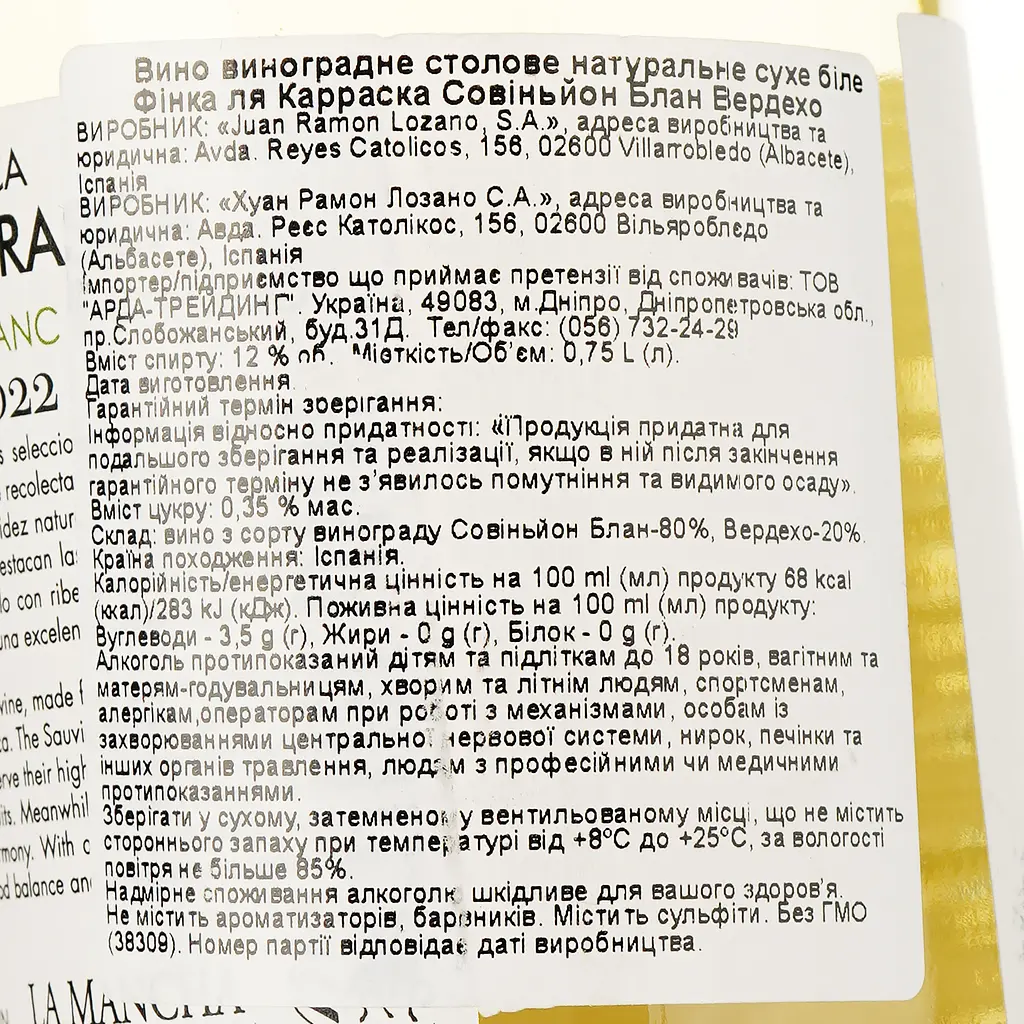 Вино виноградне столове натуральне сухе біле
Фінка ля Карраска Совіньйон Блан Вердехо
ВИРОБНИК: «Juan Ramon Lozano, S.A.», адреса виробництва та
юридична: Avda. Reyes Catolicos, 156, 02600 Villarrobledo (Albacete),
Іспанія
ВИРОБНИК: «Хуан Рамон Лозано С.А.», адреса виробництва та
юридична: Авда. Реєс Католікос, 156, 02600 Вільяроблєдо
(Альбасете), Іспанія
Імпортер/підприємство що приймає претензії від споживачів: ТОВ
"АРДА-ТРЕЙДИНГ". Україна, 49083, м.Дніпро, Дніпропетровська обл.,
пр.Слобожанський, буд.31Д. Тел/факс: (056) 732-24-29
Вміст спирту: 12 % об. Місткість/Об'єм: 0,75 L (л).
Дата виготовлення
Гарантійний термін зберігання:
Інформація відносно придатності: «Продукція придатна для
подальшого зберігання та реалізації, якщо в ній після закінчення
гарантійного терміну не з'явилось помутніння та видимого осаду».
Вміст цукру: 0,35 % мас.
Склад: вино з сорту винограду Совіньйон Блан-80%, Вердехо-20%.
Країна походження: Іспанія.
Калорійність/енергетична цінність на 100 ml (мл) продукту 68 kcal
(ккал)/283 kJ (кДж). Поживна цінність на 100 ml (мл) продукту:
Вуглеводи - 3,5 g (г), Жири - 0 g (г), Білок - 0 g (г).
Алкоголь протипоказаний дітям та підліткам до 18 років, вагітним та
матерям-годувальницям, хворим та літнім людям, спортсменам,
алергікам,операторам при роботі з механізмами, особам із
захворюваннями центральної нервової системи, нирок, печінки та
інших органів травлення, людям з професійними чи медичними
протипоказаннями.
Зберігати у сухому, затемненому вентильованому місці, що не містить
стороннього запаху при температурі від +8°C до +25°C, за вологості
повітря не більше 85%.
Надмірне споживання алкоголю шкідливе для вашого здоров'я.
Не містить ароматизаторів, барвників. Містить сульфіти. Без ГМО
(38309). Номер партії відповідає даті виробництва.
RA
ANC
022
seleccio
recolecta
natur
estacan
con ribe
una excelen
wine, made
The Sauvi
their high
Meanwhil
With
balance an
LA MANCHA